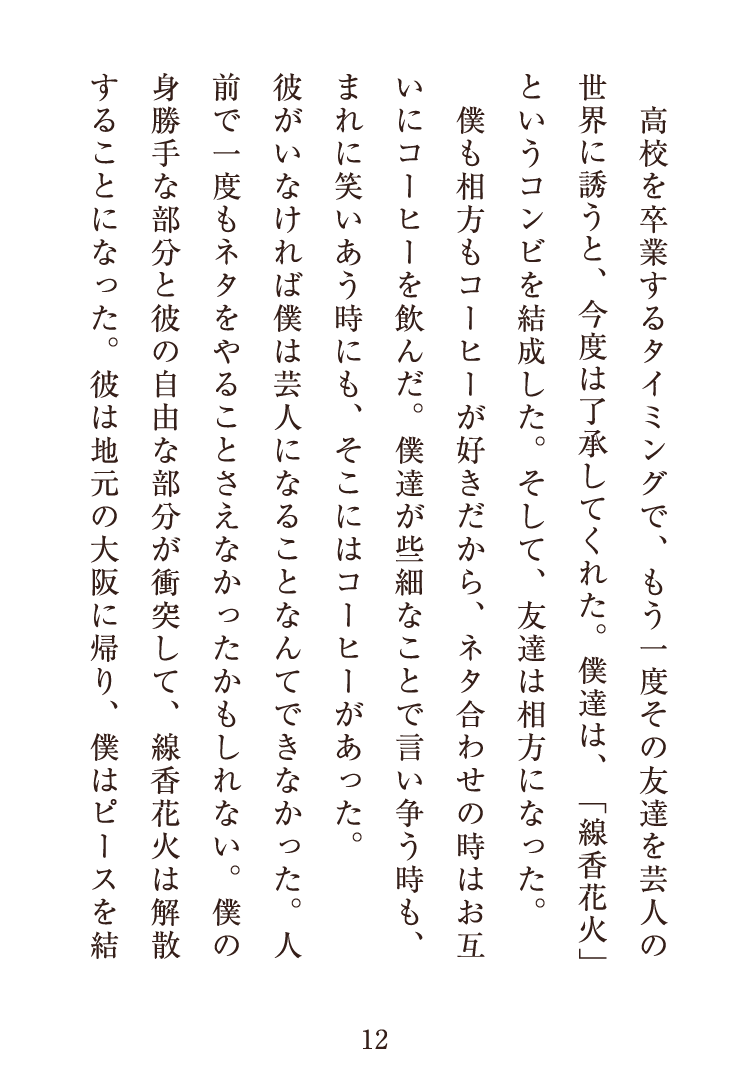 高校を卒業するタイミングで、もう一度その友達を芸人の
世界に誘うと、今度は了承してくれた。僕達は、「線香花火」
というコンビを結成した。そして、友達は相方になった。
僕も相方もコーヒーが好きだから、ネタ合わせの時はお互
いにコーヒーを飲んだ。僕達が些細なことで言い争う時も、
まれに笑いあう時にも、そこにはコーヒーがあった。
彼がいなければ僕は芸人になることなんてできなかった。人
前で一度もネタをやることさえなかったかもしれない。僕の
身勝手な部分と彼の自由な部分が衝突して、線香花火は解散
することになった。彼は地元の大阪に帰り、僕はピースを結
12